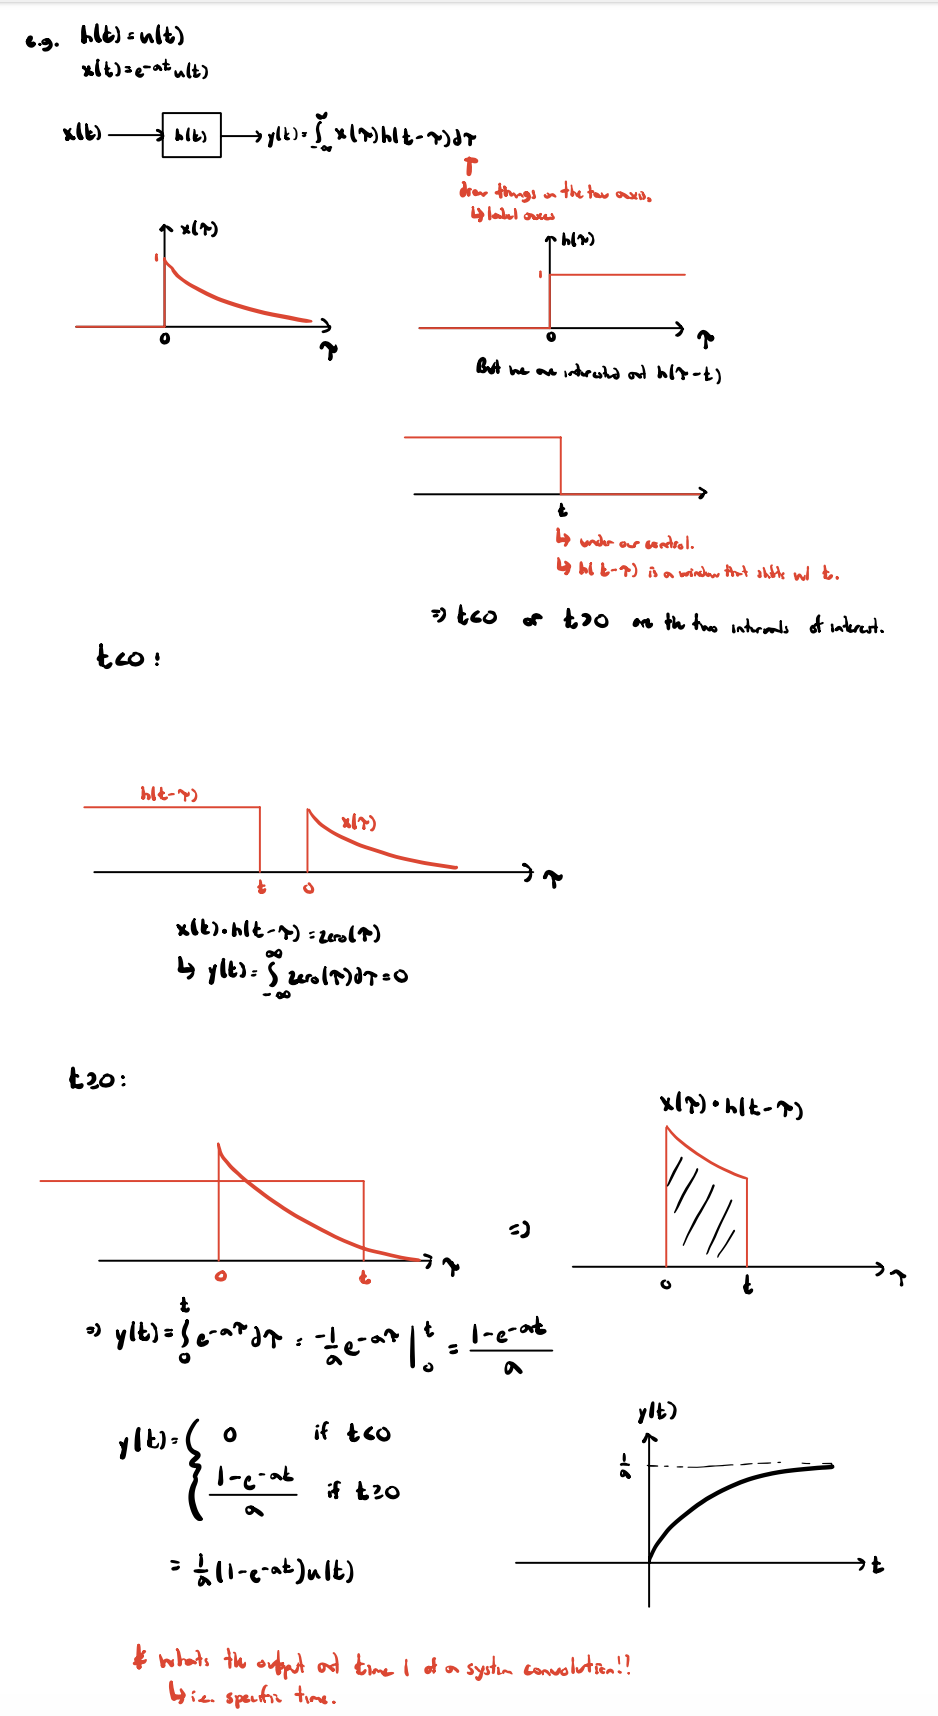 e.g. h(t) = u(t)
x(t) = e^-at u(t)
x(t) → h(t) → y(t) = ∫_-∞^∞ x(τ)h(t-τ)dτ
↑
draw things on the tau axis.
↳ label axes
x(τ)
1
0
τ
h(τ)
1
0
τ
But we are interested at h(τ-t)
t
↳ under our control.
↳ h(t-τ) is a window that shifts w/ t.
⇒ t<0 or t>0 are the two intervals of interest.
t<0:
h(t-τ)
x(τ)
t 0 τ
x(t)·h(t-τ) = zero(τ)
↳ y(t) = ∫_-∞^∞ zero(τ)dτ = 0
t≥0:
x(τ)·h(t-τ)
0 t τ
⇒
0 t τ
⇒ y(t) = ∫_0^t e^-aτ dτ = -1/a e^-aτ |_0^t = (1-e^-at)/a
y(t) = { 0 if t<0
(1-e^-at)/a if t≥0
= 1/a (1-e^-at)u(t)
y(t)
1/a
t
* whats the output at time 1 of a system convolution!!
↳ i.e. specific time.